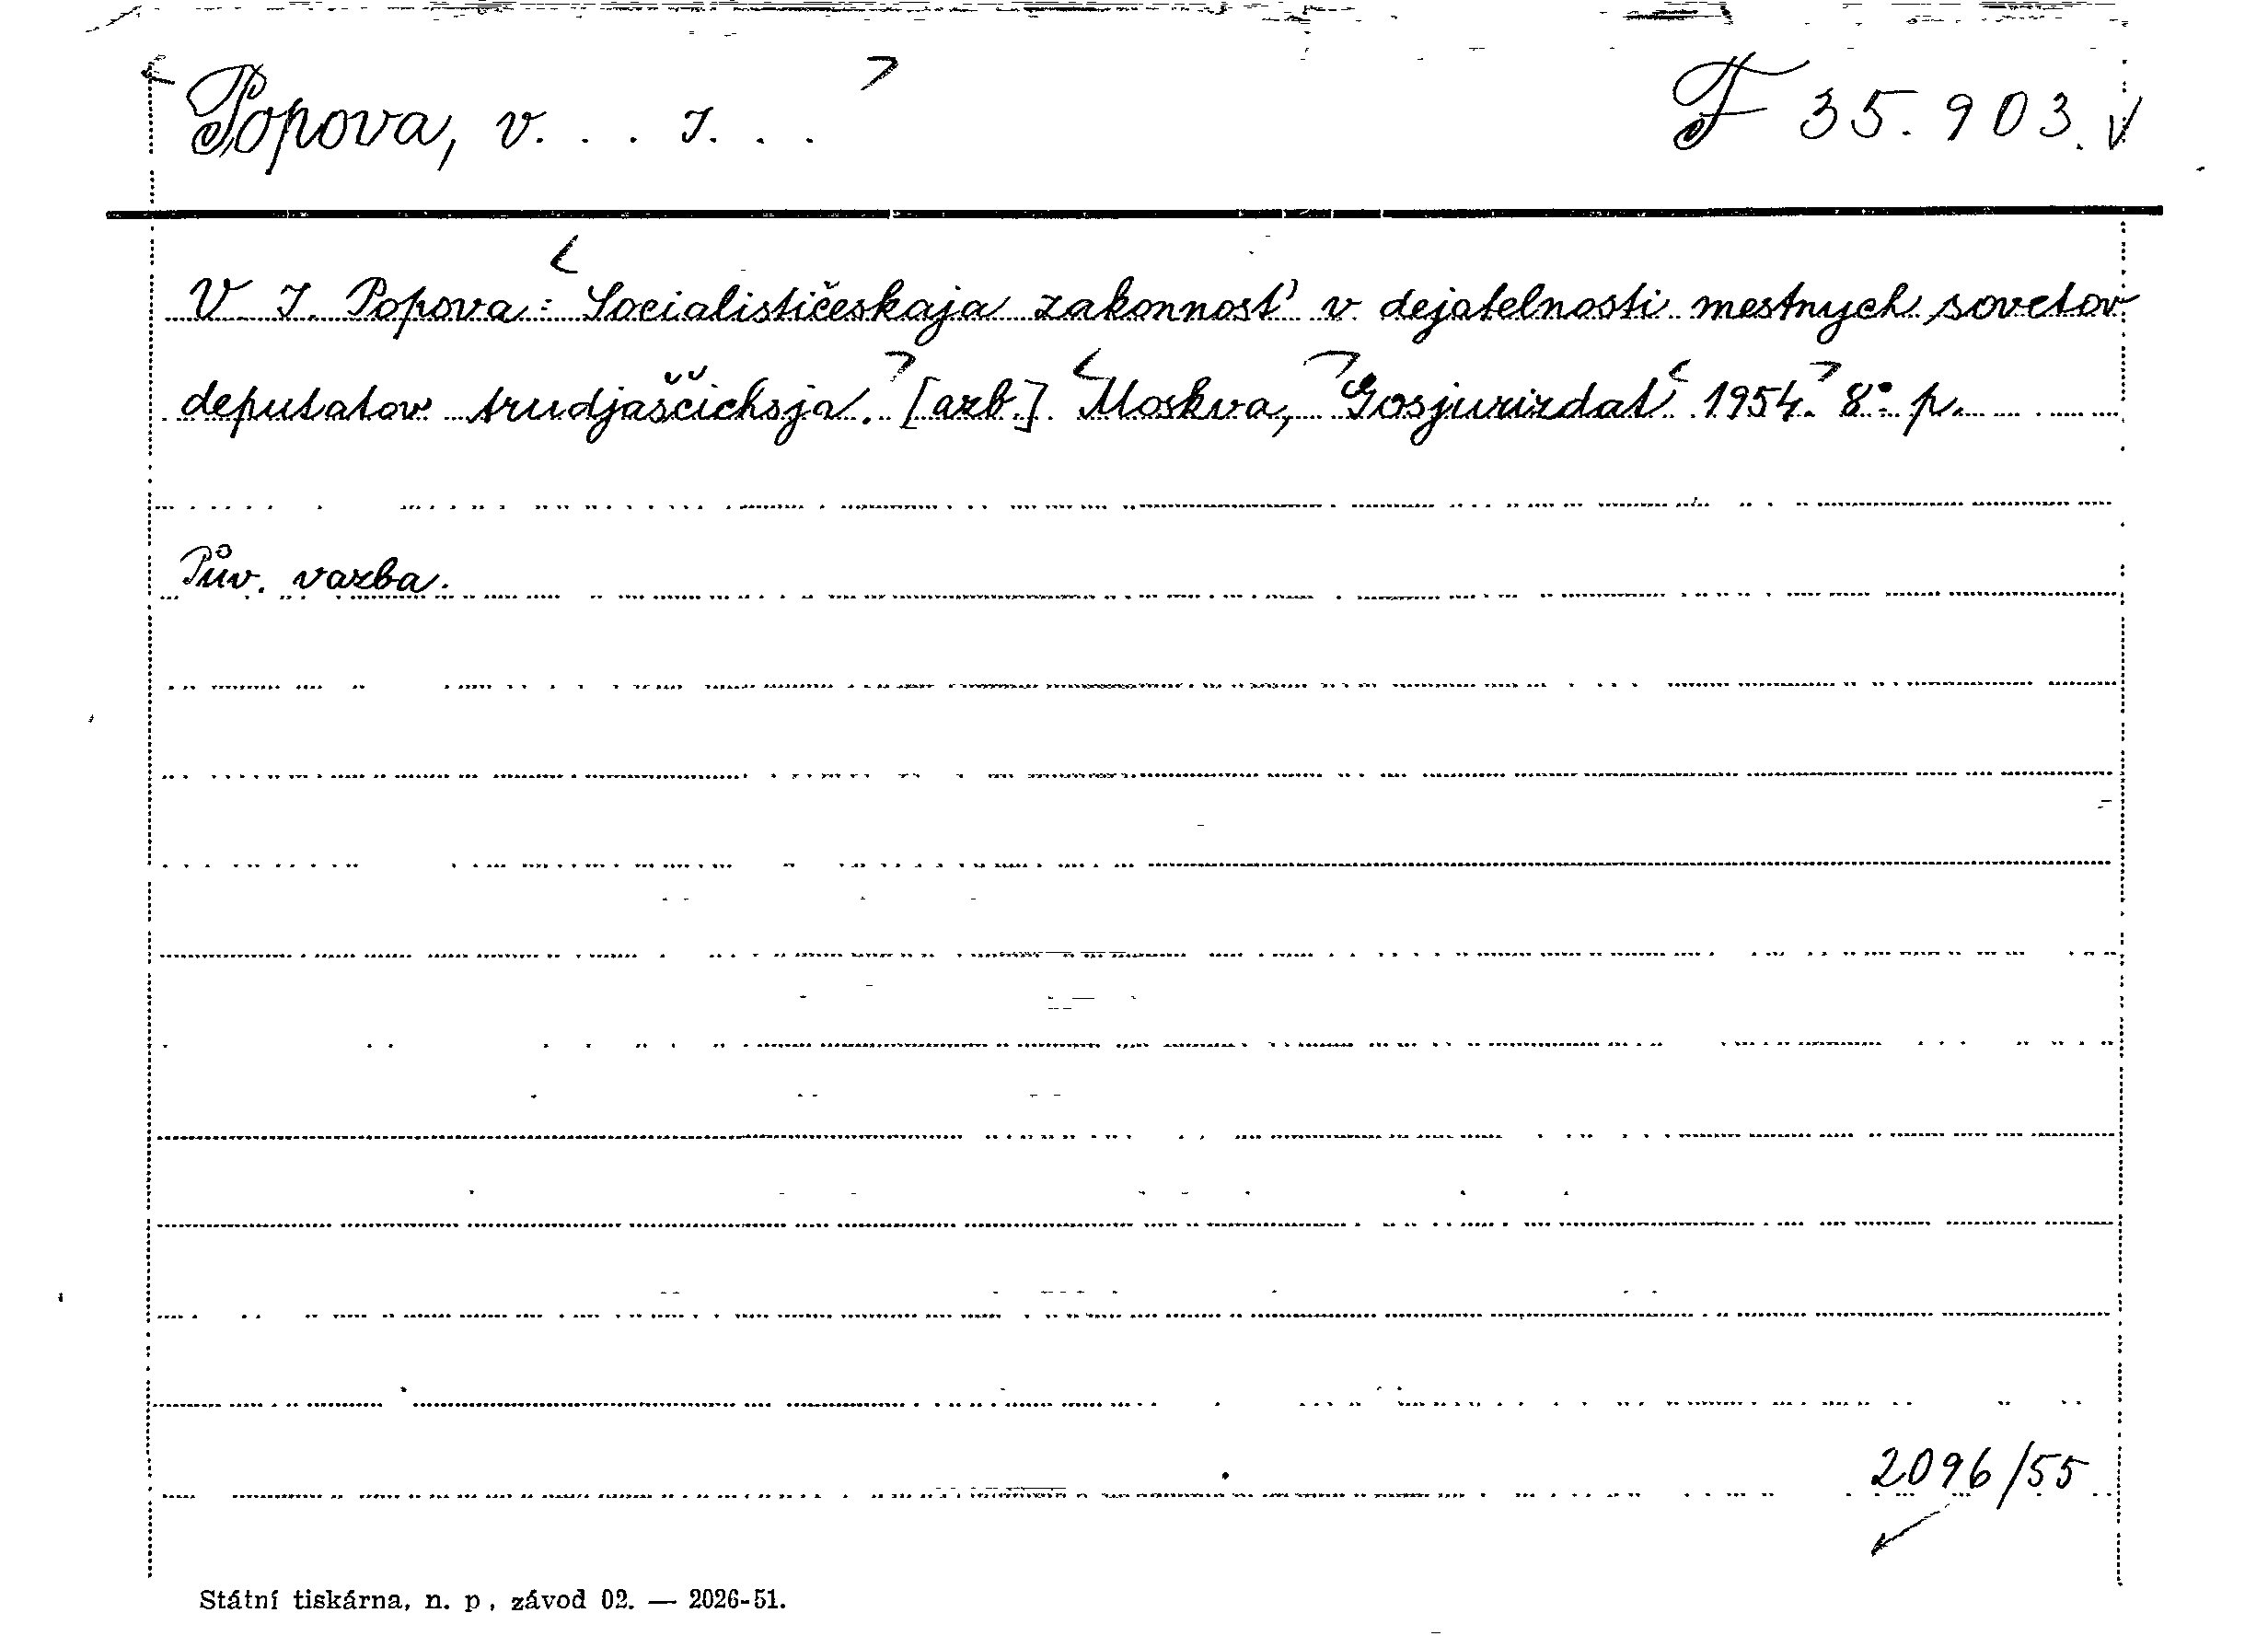 Popova, V. . . J. . . F 35.903.
V. J. Popova: Socialističeskaja zakonnosť v dejatelnosti mestnych sovetov
deputatov trudjaščichsja. [azb.]. Moskva, Gosjurizdat 1954. 8°. p.
Pův. vazba.
2096/55
Státní tiskárna, n. p., závod 02. — 2026-51.